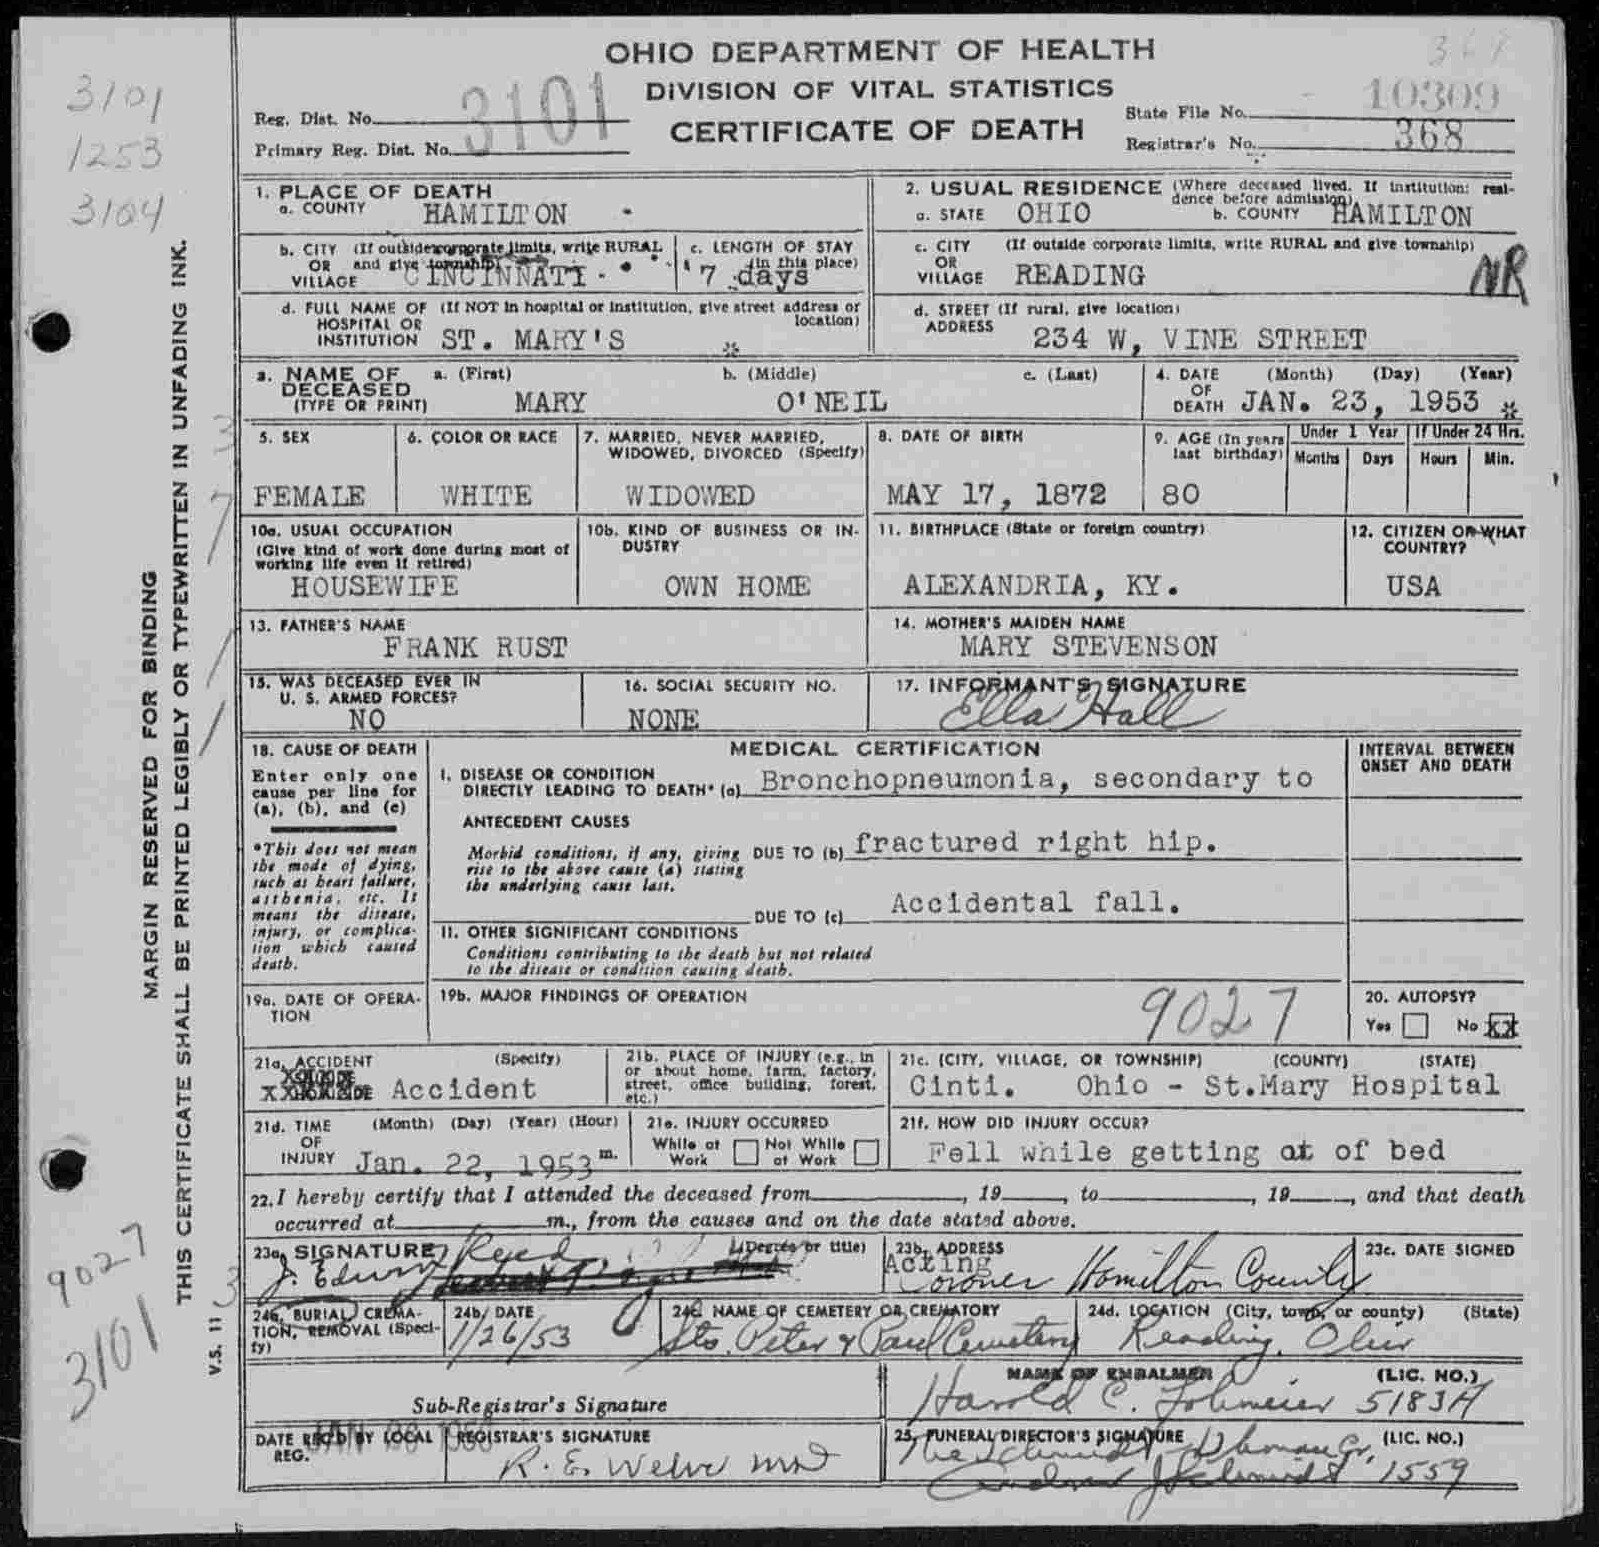 OHIO DEPARTMENT OF HEALTH
DIVISION OF VITAL STATISTICS
CERTIFICATE OF DEATH
Reg. Dist. No. 3101
Primary Reg. Dist. No.
State File No. 10309
Registrar's No. 368
3101
1253
3104
1. PLACE OF DEATH
a. COUNTY HAMILTON
b. CITY (If outside corporate limits, write RURAL
OR and give township)
VILLAGE CINCINNATI
c. LENGTH OF STAY
(in this place)
7 days
d. FULL NAME OF (If NOT in hospital or institution, give street address or
HOSPITAL OR location)
INSTITUTION ST. MARY'S
2. USUAL RESIDENCE (Where deceased lived. If institution: resi-
dence before admission)
a. STATE OHIO b. COUNTY HAMILTON
c. CITY (If outside corporate limits, write RURAL and give township)
OR
VILLAGE READING
NR
d. STREET (If rural, give location)
ADDRESS 234 W, VINE STREET
3. NAME OF a. (First) b. (Middle) c. (Last)
DECEASED
(TYPE OR PRINT) MARY O'NEIL
4. DATE (Month) (Day) (Year)
OF
DEATH JAN. 23, 1953
5. SEX
FEMALE
6. COLOR OR RACE
WHITE
7. MARRIED, NEVER MARRIED,
WIDOWED, DIVORCED (Specify)
WIDOWED
8. DATE OF BIRTH
MAY 17, 1872
9. AGE (In years
last birthday)
80
Under 1 Year
Months Days
If Under 24 Hrs.
Hours Min.
10a. USUAL OCCUPATION
(Give kind of work done during most of
working life even if retired)
HOUSEWIFE
10b. KIND OF BUSINESS OR IN-
DUSTRY
OWN HOME
11. BIRTHPLACE (State or foreign country)
ALEXANDRIA, KY.
12. CITIZEN OR WHAT
COUNTRY?
USA
13. FATHER'S NAME
FRANK RUST
14. MOTHER'S MAIDEN NAME
MARY STEVENSON
15. WAS DECEASED EVER IN
U. S. ARMED FORCES?
NO
16. SOCIAL SECURITY NO.
NONE
17. INFORMANT'S SIGNATURE
Ella Hall
18. CAUSE OF DEATH
Enter only one
cause per line for
(a), (b), and (c)
*This does not mean
the mode of dying,
such as heart failure,
asthenia, etc. It
means the disease,
injury, or complica-
tion which caused
death.
MEDICAL CERTIFICATION
I. DISEASE OR CONDITION
DIRECTLY LEADING TO DEATH* (a) Bronchopneumonia, secondary to
ANTECEDENT CAUSES
Morbid conditions, if any, giving DUE TO (b) fractured right hip.
rise to the above cause (a) stating
the underlying cause last.
DUE TO (c) Accidental fall.
II. OTHER SIGNIFICANT CONDITIONS
Conditions contributing to the death but not related
to the disease or condition causing death.
INTERVAL BETWEEN
ONSET AND DEATH
19a. DATE OF OPERA-
TION
19b. MAJOR FINDINGS OF OPERATION
9027
20. AUTOPSY?
Yes No XX
21a. ACCIDENT (Specify)
SUICIDE
HOMICIDE Accident
21b. PLACE OF INJURY (e.g., in
or about home, farm, factory,
street, office building, forest,
etc.)
21c. (CITY, VILLAGE, OR TOWNSHIP) (COUNTY) (STATE)
Cinti. Ohio - St.Mary Hospital
21d. TIME (Month) (Day) (Year) (Hour)
OF
INJURY Jan. 22, 1953 m.
21e. INJURY OCCURRED
While at Work Not While at Work
21f. HOW DID INJURY OCCUR?
Fell while getting ot of bed
22. I hereby certify that I attended the deceased from , 19 , to , 19 , and that death
occurred at m., from the causes and on the date stated above.
23a. SIGNATURE (Degree or title)
J. Edwin Reed
23b. ADDRESS
Acting
Coroner Hamilton County
23c. DATE SIGNED
24a. BURIAL, CREMA-
TION, REMOVAL (Speci-
fy)
24b. DATE
1/26/53
24c. NAME OF CEMETERY OR CREMATORY
Sts. Peter & Paul Cemetery
24d. LOCATION (City, town, or county) (State)
Reading, Ohio
Sub-Registrar's Signature
NAME OF EMBALMER (LIC. NO.)
Harold C. 5183A
DATE REC'D BY LOCAL
REG.
JAN 26 1953
REGISTRAR'S SIGNATURE
R. E. Wehr MD
25. FUNERAL DIRECTOR'S SIGNATURE (LIC. NO.)
The Schmidt
1559
MARGIN RESERVED FOR BINDING
THIS CERTIFICATE SHALL BE PRINTED LEGIBLY OR TYPEWRITTEN IN UNFADING INK.
V.S. 11
9027
3101